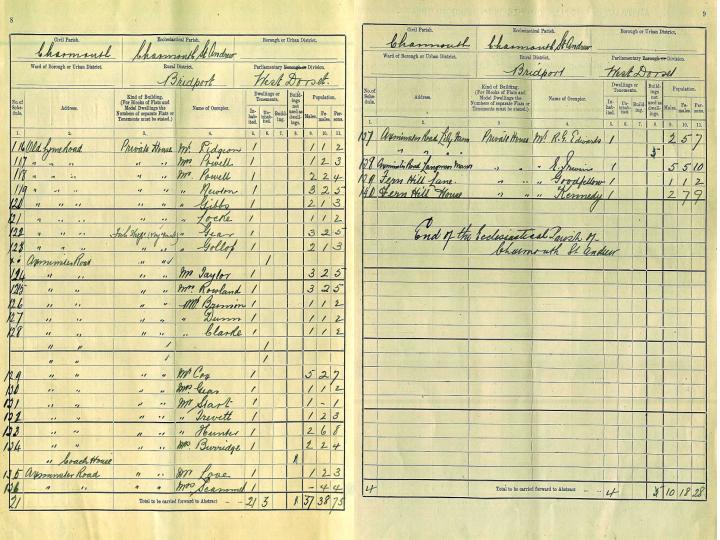 8
Civil Parish.
Ecclesiastical Parish.
Borough or Urban District.
Charmouth
Charmouth, St Andrew
Ward of Borough or Urban District.
Rural District.
Parliamentary Borough or Division.
Bridport
West Dorset.
No. of Schedule.
Address.
Kind of Building. (For Blocks of Flats and Model Dwellings the Numbers of separate Flats or Tenements must be stated.)
Name of Occupier.
Dwellings or Tenements.
Buildings not used as dwellings.
Population.
Inhabited.
Uninhabited.
Building.
Males.
Females.
Persons.
1. 2. 3. 4. 5. 6. 7. 8. 9. 10. 11.
116 Old Lyme Road Private House Mr. Pidgeon 1 1 1 2
117 " " " " " Mrs Powell 1 1 2 3
118 " " " " " Mr. Powell 1 2 2 4
119 " " " " " " Newton 1 3 2 5
120 " " " " " " Gibbs 1 2 1 3
121 " " " " " " Locke 1 1 1 2
122 " " " " Gear 1 3 2 5
123 " " " " " " Gollop 1 2 1 3
Axminster Road " " 1
124 " " " " Mr Taylor 1 3 2 5
125 " " " " Mrs Rowland 1 3 2 5
126 " " " " Mr 1 1 1 2
127 " " " " " Dunn 1 1 1 2
128 " " " " " Clarke 1 1 1 2
" " 1 1
" " 1 1
129 " " " " Mr Cox 1 5 2 7
130 " " " " Mrs Gear 1 1 1 2
131 " " " " Mr Start 1 1 - 1
132 " " " " " Trevett 1 1 2 3
133 " " " " " Hunter 1 2 6 8
134 " " " " Mrs Burridge 1 2 2 4
" " Coach House 1
135 Axminster Road " " Mr Love 1 1 2 3
136 " " " " Mrs Scammell 1 - 4 4
21 Total to be carried forward to Abstract - - 21 3 1 37 38 75
9
Civil Parish.
Ecclesiastical Parish.
Borough or Urban District.
Charmouth
Charmouth, St Andrew
Ward of Borough or Urban District.
Rural District.
Parliamentary Borough or Division.
Bridport
West Dorset
No. of Schedule.
Address.
Kind of Building. (For Blocks of Flats and Model Dwellings the Numbers of separate Flats or Tenements must be stated.)
Name of Occupier.
Dwellings or Tenements.
Buildings not used as dwellings.
Population.
Inhabited.
Uninhabited.
Building.
Males.
Females.
Persons.
1. 2. 3. 4. 5. 6. 7. 8. 9. 10. 11.
137 Axminster Road Lily Farm Private House Mr. R.G. Edwards 1 2 5 7
" " " 5
138 Axminster Road Langmoor Manor " " 1 5 5 10
139 Fern Hill Lane. " " " Goodfellow 1 1 1 2
140 Fern Hill House " " " Kennedy 1 2 7 9
End of the Ecclesiastical Parish of
Charmouth St Andrew
4 Total to be carried forward to Abstract - - 4 5 10 18 28